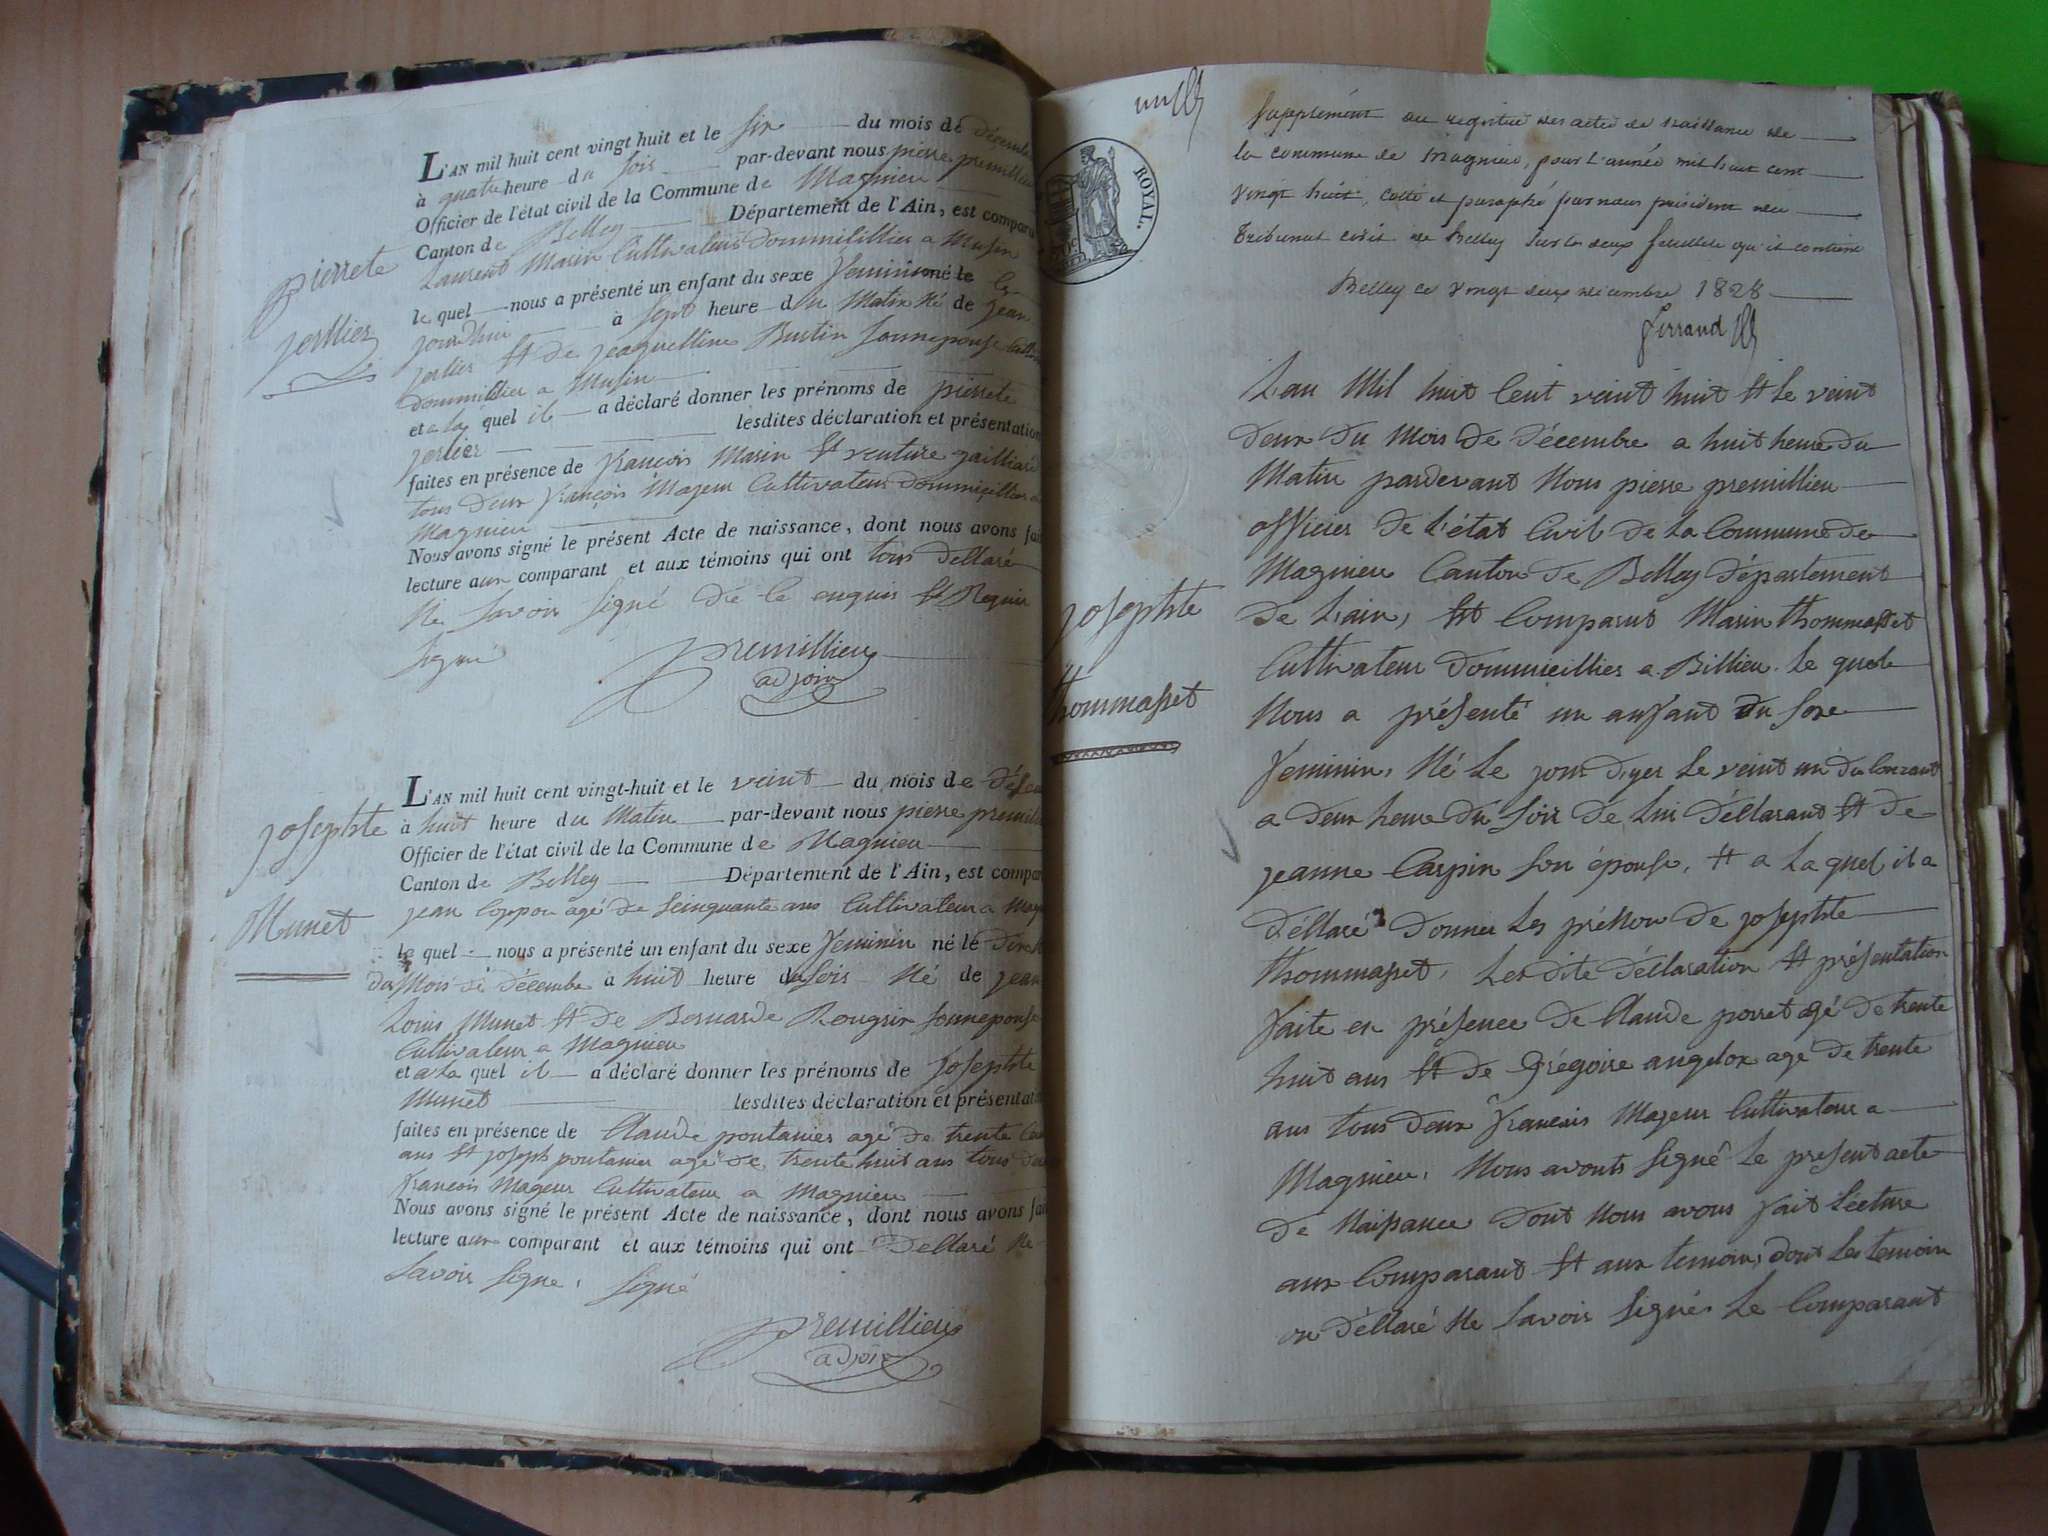 L'AN mil huit cent vingt huit et le six du mois de décembre
à quatre heure du soir par-devant nous pierre premillieu
Officier de l'état civil de la Commune de Magnieu
Canton de Belley Département de l'Ain, est comparu
Laurent Marin Cultivateur dommicillier a Musin
le quel nous a présenté un enfant du sexe feminin né le ce
jourdhui à sept heure du Matin Né de jean
jerlier Et de jeaquelline Burtin sonnepouse
dommicillier a Musin
et a la quel il a déclaré donner les prénoms de pierrete
jerlier lesdites déclaration et présentation
faites en présence de françois Marin Et venture gailliard
tous deux françois Majeur Cultivateur dommicillier a
Magnieu
Nous avons signé le présent Acte de naissance, dont nous avons fait
lecture aux comparant et aux témoins qui ont tous dellaré
Ne savoir signé de ce enquis Et Requir
signé
premillieu
adjoin
pierrete
jerllier
L'AN mil huit cent vingt-huit et le veint du mois de
à huit heure du Matin par-devant nous pierre
Officier de l'état civil de la Commune de Magnieu
Canton de Belley Département de l'Ain, est compar
jean Coppon agé de seinquante ans Cultivateur a
le quel nous a présenté un enfant du sexe feminin né le
du Mois de décembre à huit heure du soir Né de jean
Louis Munet Et de Bernarde Rougrin sonnepouse
Cultivateur a Magnieu
et a La quel il a déclaré donner les prénoms de josephte
Munet lesdites déclaration et présentat
faites en présence de Claude pontanier agé de trente
ans Et joseph pontanier agé de trente huit ans tous
françois Majeur Cultivateur a Magnieu
Nous avons signé le présent Acte de naissance, dont nous avons fai
lecture aux comparant et aux témoins qui ont dellaré Ne
savoir signe, signé
premillieu
adjoin
josephte
Munet
ROYAL.
Supplément au registre des actes de naissance de
la commune de Magnieu, pour l'année mil huit cent
vingt huit, coté et paraphé par nous président du
Tribunal civil de Belley sur les deux feuillets qu'il contient
Belley ce vingt deux décembre 1828
ferrand
Lan Mil huit Cent veint huit Et Le veint
deux du Mois de décembre a huit heure du
Matin pardevant Nous pierre premillieu
officier de L'état Civil de La Commune de
Magnieu Canton de Belley département
de Lain, Est Comparut Marin thommasset
Cultivateur dommicillier a Billieu. Le quel
Nous a présenté un anfant du sexe
féminin, Né Le jour dyer Le veint un du Courant
a deux heure du soir de Lui déllarant Et de
jeanne Carpin son épouse, Et a La quel il a
déllaré donner Les prénom de josephte
thommasset, Lesdite déllaration Et présentation
faite en présence de Claude porret agé de trente
huit ans Et de Grégoire angelox agé de trente
ans tous deux francais Majeur Cultivateur a
Magnieu, Nous avonts signé Le present acte
de Naissance dont Nous avons fait Lécture
aux Comparant Et aux temoin, dont Les temoin
on déllaré Ne savoir signé. Le Comparant
josephte
thommasset